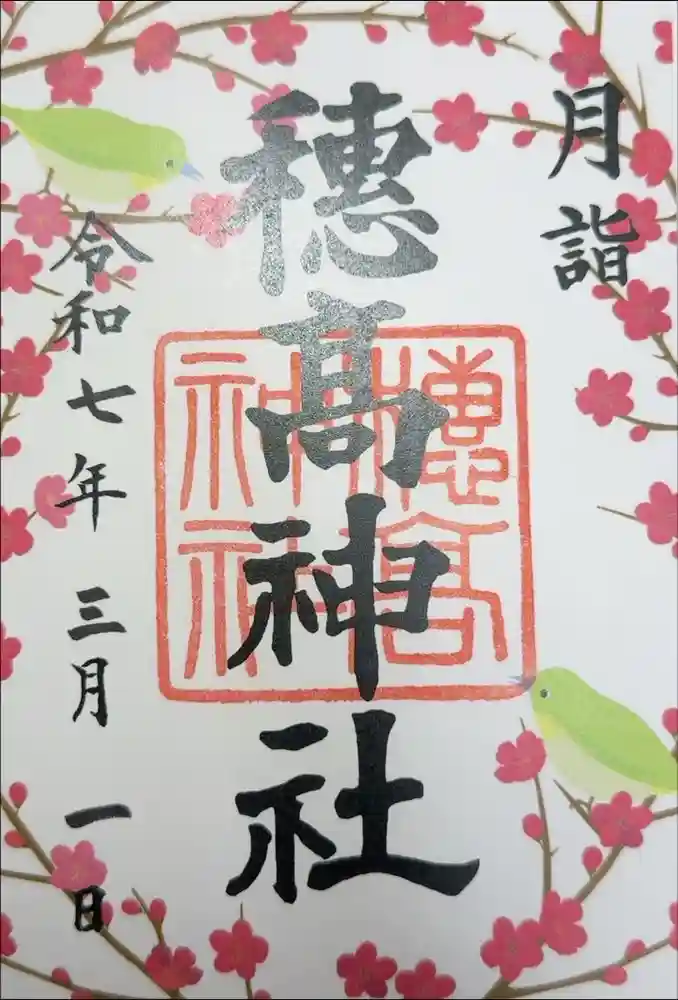 月詣
穂髙神社
穂高神社
令和七年 三月 一日